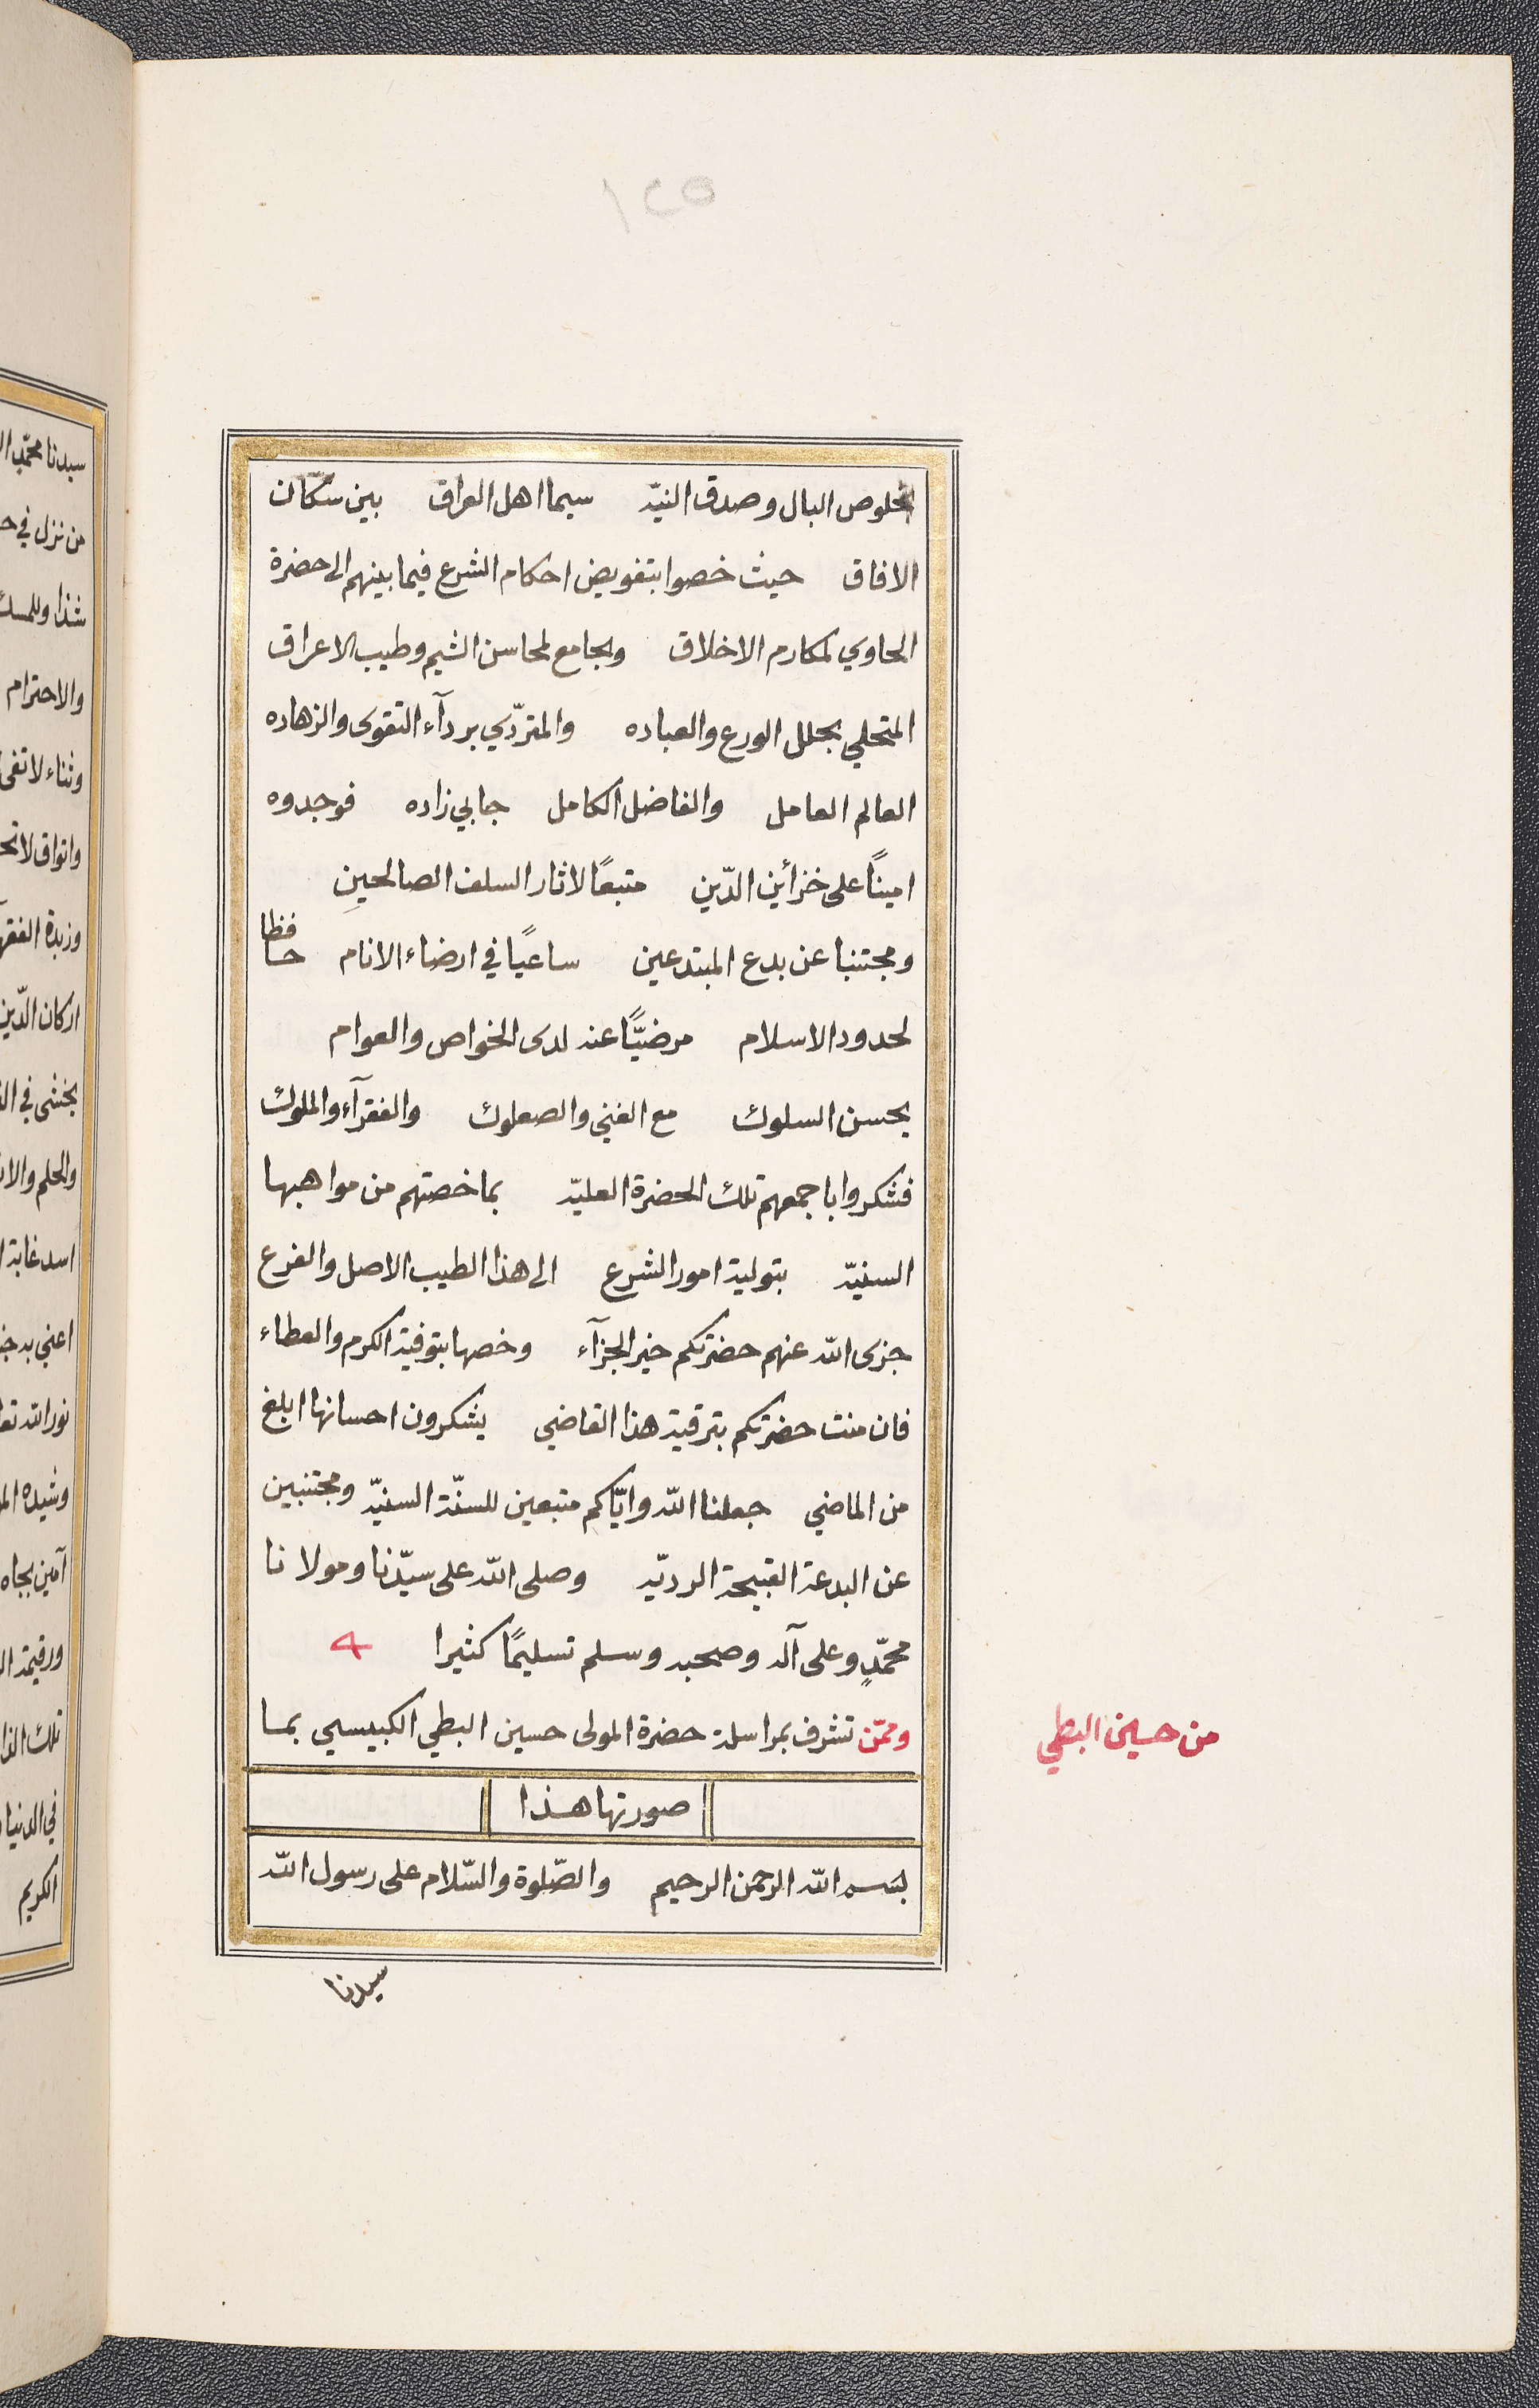 ١٢٥
بخلوص البال وصدق النيّه سيما اهل العراق بين سكّان
الافاق حيث خصوا بتفويض احكام الشرع فيما بينهم الى حضرة
الحاوي لمكارم الاخلاق والجامع لمحاسن الشيم وطيب الاعراق
المتحلي بحلل الورع والعباده والمتردّي بردآء التقوى والزهاده
العالم العامل والفاضل الكامل جابي زاده فوجدوه
اميناً على خزائن الدّين متبعًا لاثار السلف الصالحينِ
ومجتنبا عن بدع المبتدعين ساعيًا في ارضاء الانام حافظا
لحدود الاسلام مرضيًّا عند لدى الخواص والعوام
بحسن السلوك مع الغني والصعلوك والفقرآء والملوك
فشكروا باجمعهم تلك الحضرة العليّه بما خصتهم من مواهبها
السنيّه بتولية امور الشرع الى هذا الطيب الاصل والفرع
جزى الله عنهم حضرتكم خير الجزآء وخصها بتوفية الكرم والعطاء
فان منت حضرتكم بترقية هذا القاضي يشكرون احسانها ابلغ
من الماضي جعلنا الله وايّاكم متبعين للسنّة السنيّه ومجتنبين
عن البدعة القبيحة الرديّه وصلى الله على سيّدنا ومولانا
محمّدٍ وعلى آله وصحبه وسلم تسليمًا كثيرا
وممّن تشرف بمراسلة حضرة المولى حسين البطي الكبيسي بما
من حسين البطي
صورتها هذا
بسم الله الرحمن الرحيم والصّلوة والسّلام على رسول الله
سيدنا